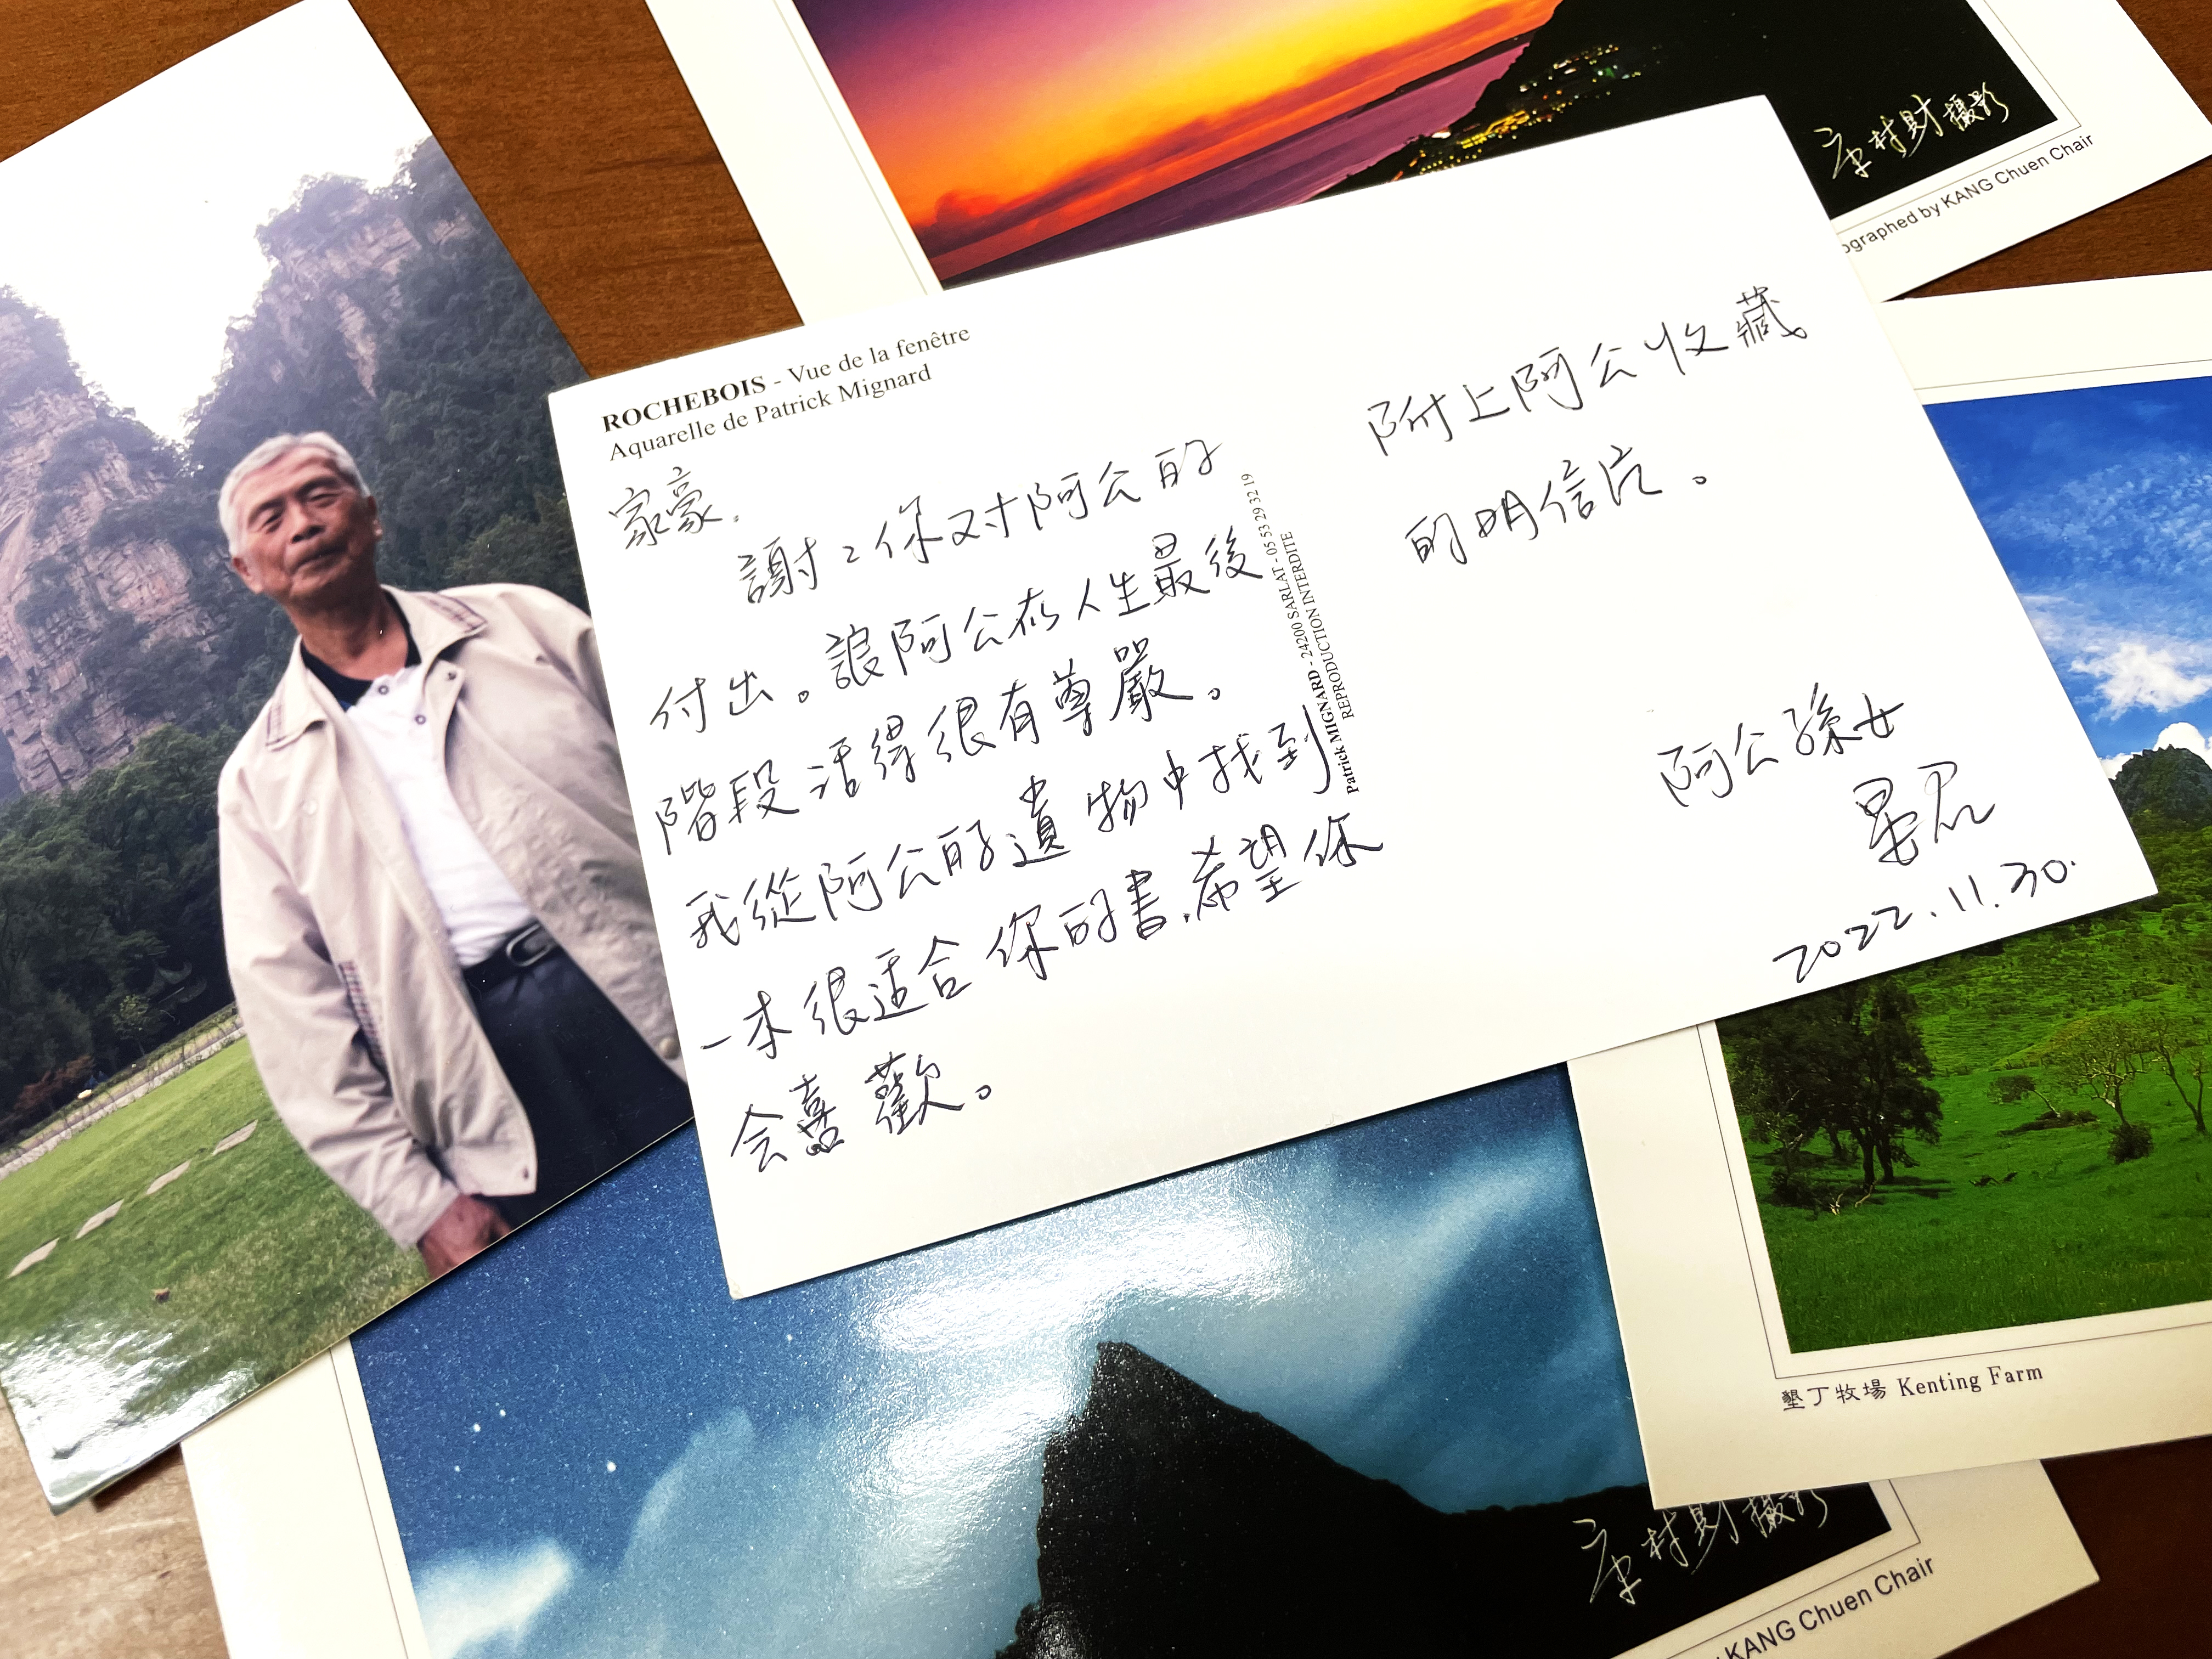 康村財攝影
ographed by KANG Chuen Chair
ROCHEBOIS - Vue de la fenêtre
Aquarelle de Patrick Mignard
家豪,
謝:你对阿公的
付出。讓阿公在人生最後
階段活得很有尊嚴。
我從阿公的遺物中找到
一本很适合你的書,希望你
会喜歡。
Patrick MIGNARD - 24200 SARLAT - 05 53 29 32 19
REPRODUCTION INTERDITE
附上阿公收藏
的明信片。
阿公孫女
2022.11.30.
墾丁牧場 Kenting Farm
康村財攝影
KANG Chuen Chair